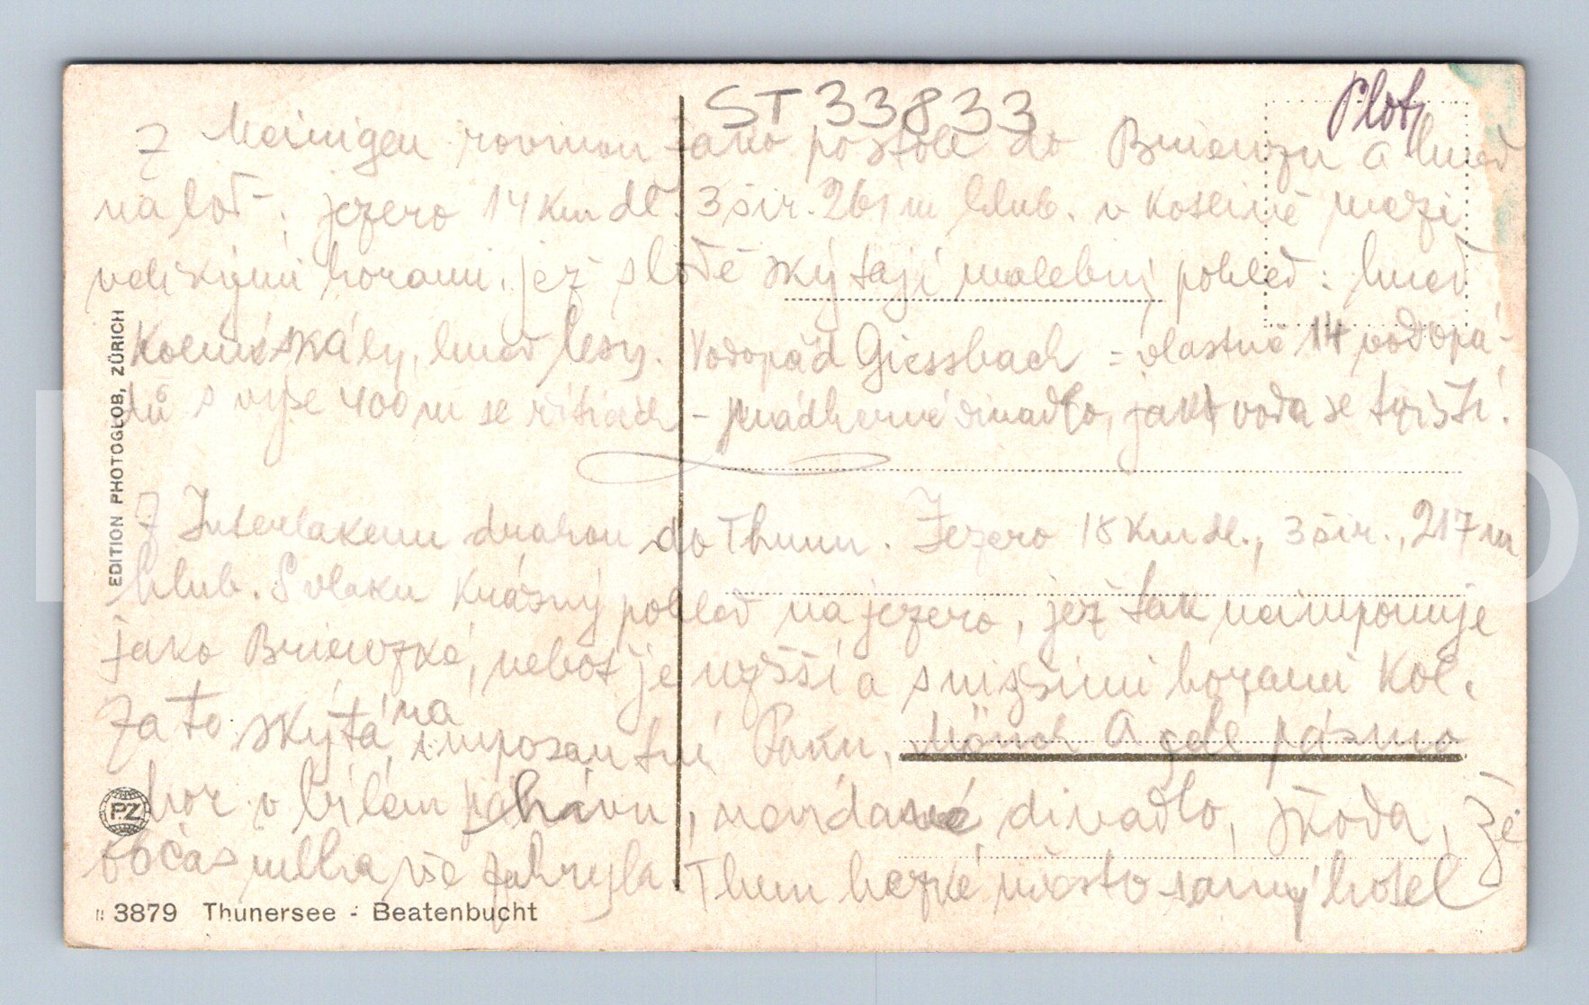 ST 33833
Plotz
Z Meiringen rovinou jako po stole do Brienzu a hned
na loď. jezero 14 km dl. 3 šir. 261 m hlub. v kotlině mezi
velikými horami, jež s lodě skýtají malebný pohled: hned
kolmé skály, hned lesy. Vodopád Giessbach = vlastně 14 vodopá-
dů s výše 400 m se řítících - nádherné divadlo, jak voda se tříští.
Z Interlakenu drahou do Thunu. Jezero 18 km dl., 3 šir., 217 m
hlub. S vlaku krásný pohled na jezero, jež tak neimponuje
jako Brienzké, neboť je užší a s nižšími horami kol.
Za to skýtá na imposantní Mönch a celé pásmo
hor v bílém hávu, nevídané divadlo, škoda, že
občas mlha vše zakryla. Thun hezké město samý hotel
EDITION PHOTOGLOB, ZÜRICH
PZ
3879 Thunersee - Beatenbucht